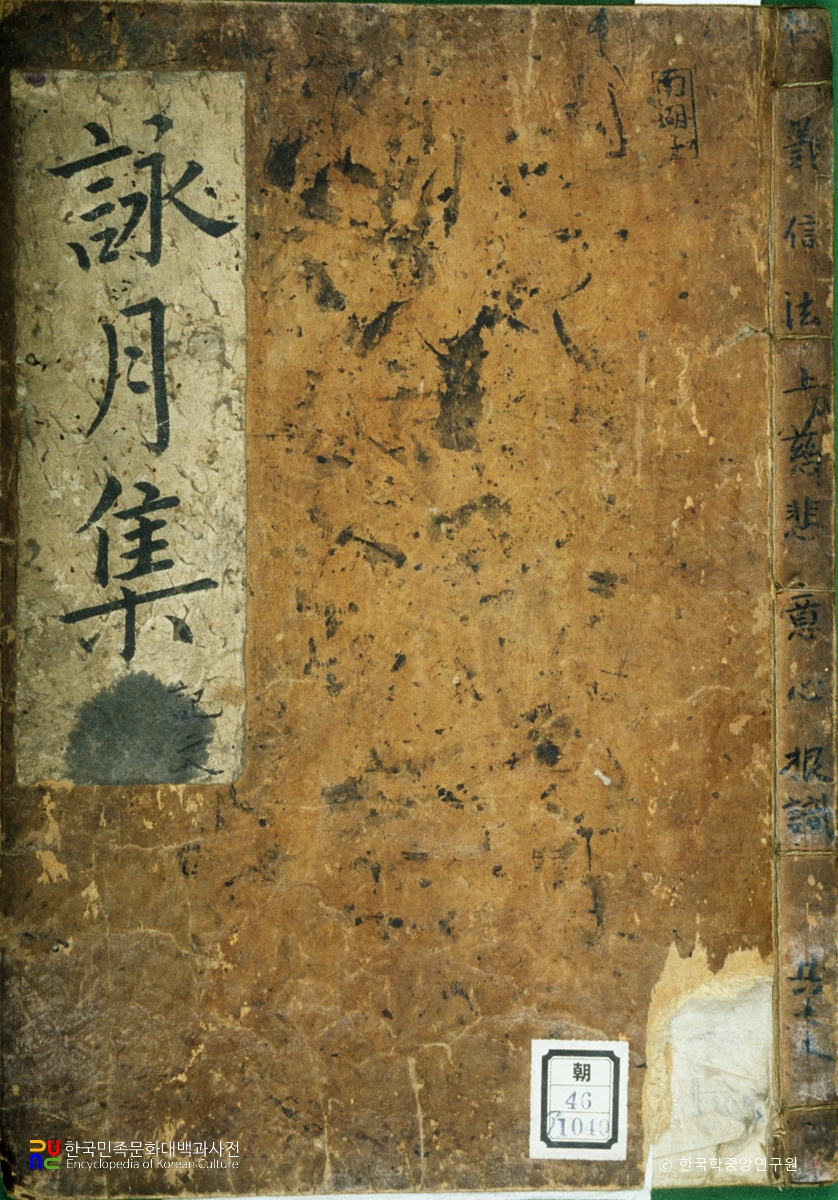 詠月集
南湖
信法
慈悲
意心根識
朝
46
1049
한국민족문화대백과사전
Encyclopedia of Korean Culture
© 한국학중앙연구원